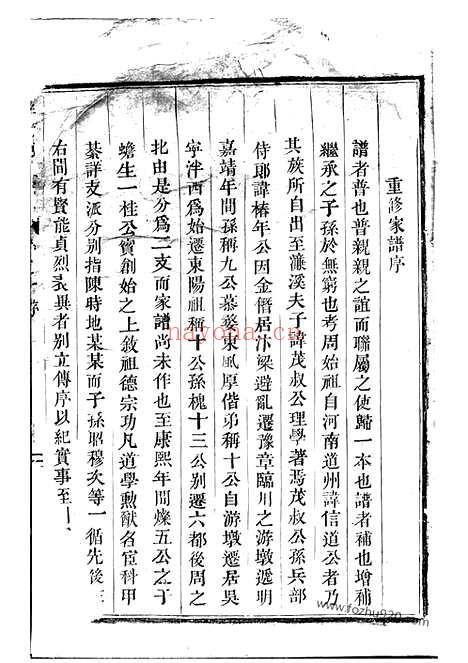 重修家譜序
譜者普也普親親之誼而聯屬之使歸一本也譜者補也增補
繼承之子孫於無窮也考周始祖自河南道州諱信道公者乃
其族所自出至濂溪夫子諱茂叔公理學著焉茂叔公孫兵部
侍郎諱椿年公因金僭居小梁避亂遷豫章臨川之游墩遞明
嘉靖年間孫稱九公慕婺東風厚偕弟稱十公自游墩遷居吳
寧泮西爲始遷東陽祖稱十公孫槐十三公別遷六都後周之
北由是分爲二支而家譜尚未作也至康熙年間燦五公之子
蟾生一桂公實創始之上敘祖德宗功凡道學勳猷名宦科甲
綦詳支派分别指陳時地某某而子孫昭穆次等一循先後
右間有賢能貞烈表異者别立傳序以紀實事至
nayona.cn
www.fozhu920.com